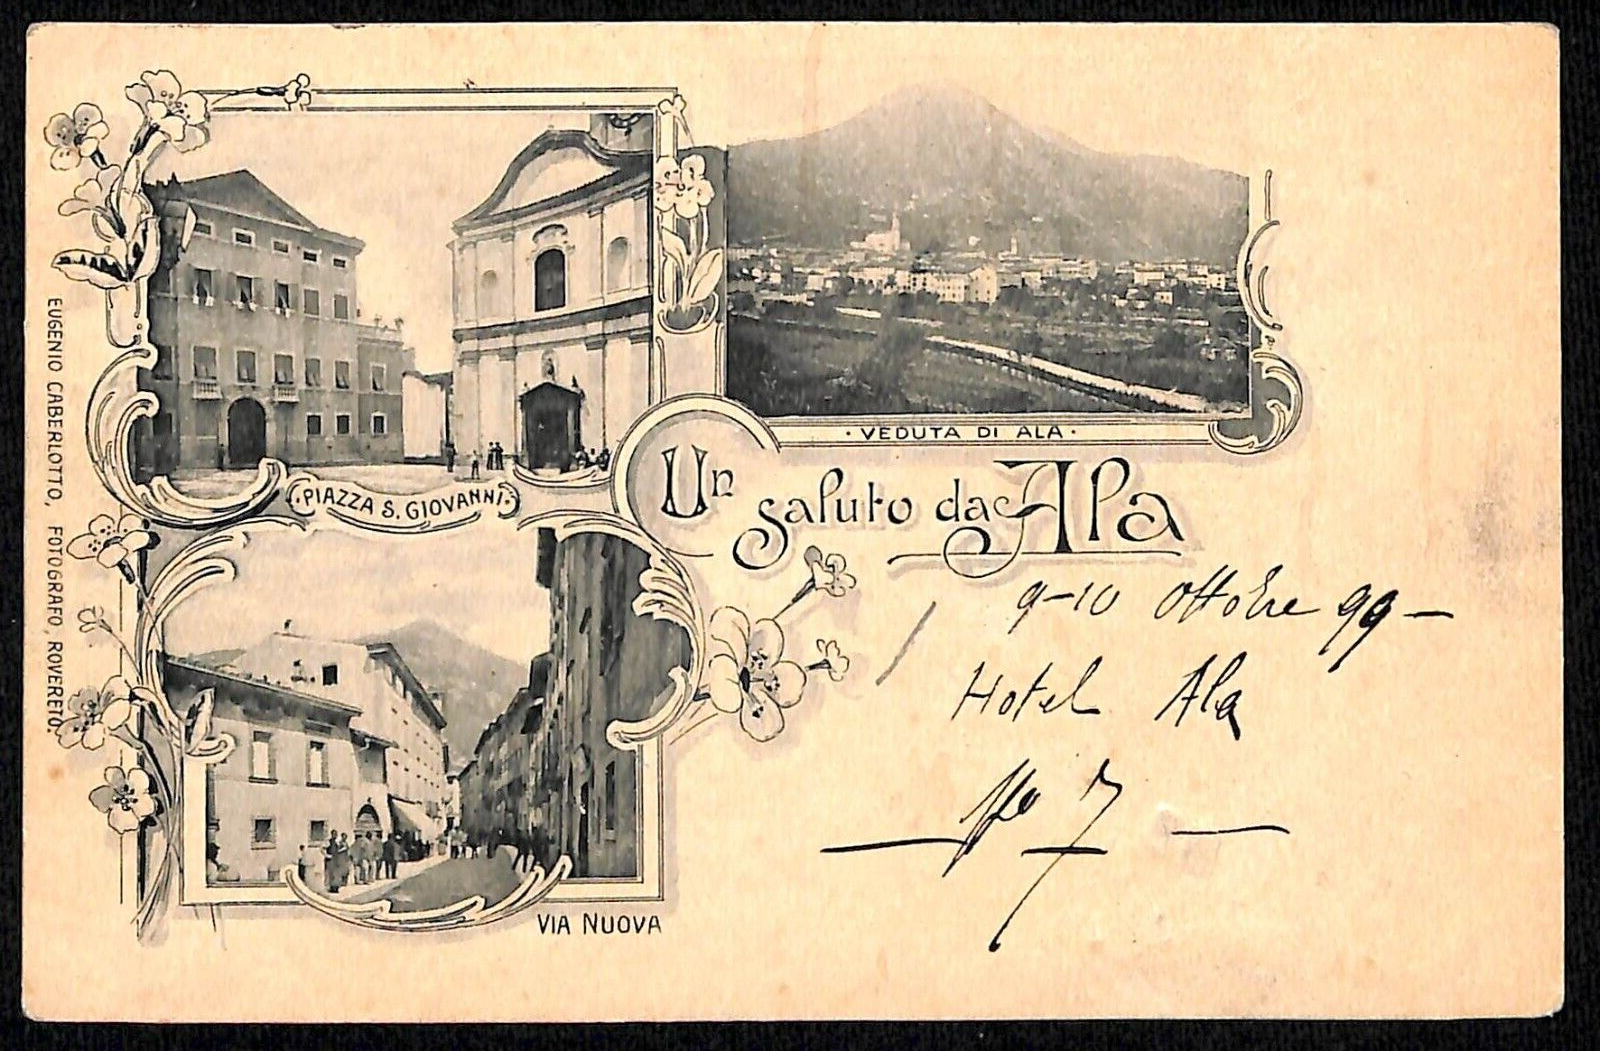 · VEDUTA DI ALA ·
·PIAZZA S. GIOVANNI·
Un saluto da Ala
EUGENIO CABERLOTTO, FOTOGRAFO, ROVERETO.
VIA NUOVA
9-10 Ottobre 99 —
Hotel Ala
— No 7 —